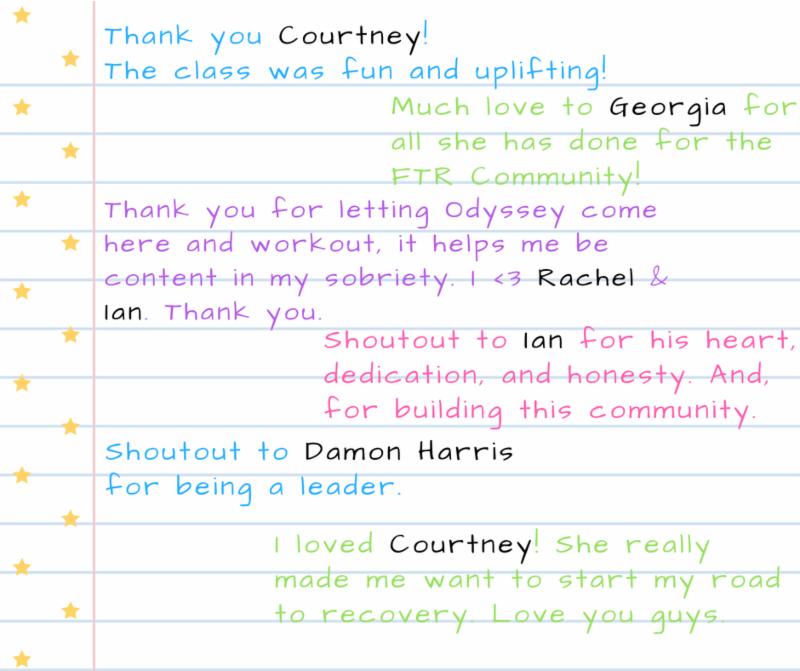 Thank you Courtney!
The class was fun and uplifting!
Much love to Georgia for
all she has done for the
FTR Community!
Thank you for letting Odyssey come
here and workout, it helps me be
content in my sobriety. I <3 Rachel &
Ian. Thank you.
Shoutout to Ian for his heart,
dedication, and honesty. And,
for building this community.
Shoutout to Damon Harris
for being a leader.
I loved Courtney! She really
made me want to start my road
to recovery. Love you guys.